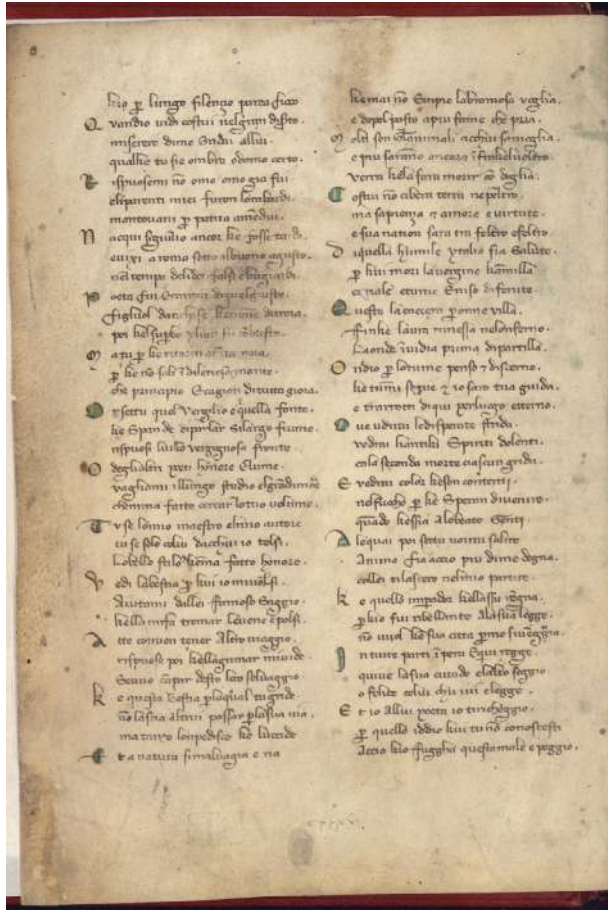 kio ꝑ lungo silenço parea fioco
Q vandio vidi costui nelgran diserto
miserere dime gridai allui
qualke tu sie ombra odomo certo
R ispuosemi nō omo omo gia fui
eliparenti miei furon lombardi
mantovani ꝑ patria amedui
N acqui sub iulio ancor ke fosse tardi
evixi a roma sotto ilbuono agusto
nel tempo delidei falsi ebugiardi
P oeta fui ecantai diquelgiusto
figliuol danchise ke venne ditroia
poi kelsuꝑbo ylion fu
M a tu ꝑ ke ritorni noia
ꝑ ke nō sali ildilectoso monte
che principio cagion ditutta gioia
O r settu quel Vergilio equella fonte
ke spande diparlar silargo fiume
rispuosi lui cō vergognosa fronte
O deglialtri poeti honore elume
vagliami illungo studio elgrādamore
chemma fatto cercar lotuo volume
T u se lomio maestro elmio autore
tu se solo colui dacchui io tolsi
lobello stilo kemma fatto honore
V edi labestia ꝑ kui io mivolsi
Aiutami dallei famoso saggio
kella mifa tremar levene epolsi
A tte convien tener altro viaggio
rispuose poi kellagrimar mivide
se vuo campar desto loco selvaggio
K e questa bestia ꝑlaqual tu gride
nō lascia altrui passar ꝑlasua via
ma tanto lompedisce ke luccide
E t a natura simalvagia e ria
kemai nō empie labramosa voglia
edopol pasto apiu fame che pria
M olti son glianimali acchui samoglia
e piu saranno ancora ifinkelveltro
verra kelafara morir cō doglia
C ostui nō cibera terra ne peltro
ma sapiença e amore e virtute
e sua nation sara tra feltro efeltro
D iquella humile ytalia fia salute
ꝑ kui mori lavergine kammilla
eurialo eturno eniso diferute
Q uesto lacaccera ꝑ onne villa
finke laura rimessa nelonferno
laonde invidia prima dipartilla
O ndio ꝑ lotume penso e discerno
ke tumi segue e io saro tua guida
e trarrotti diqui ꝑ luogo etterno
O ve udirai ledisperate strida
vedrai liantiki spiriti dolenti
cala seconda morte ciascun grida
E vedrai color keson contenti
nelfuoco ꝑ ke speran divenire
quādo kessia alebeate genti
A lequai poi settu vorrai salire
Anima fia accio piu dime degna
collei tilascero nelmio partire
K e quello imperador kellassu regna
ꝑ kio fui ribellante alasua legge
nō vuol kensua citta ꝑme sivegna
I n tutte parti impera equi regge
quivi lasua cittade elalto seggio
o felice colui chui ivi elegge
E t io Allui poeta io tiricheggio
ꝑ quello iddio kui tu nō conoscesti
Accio kio fuggha questo male e peggio